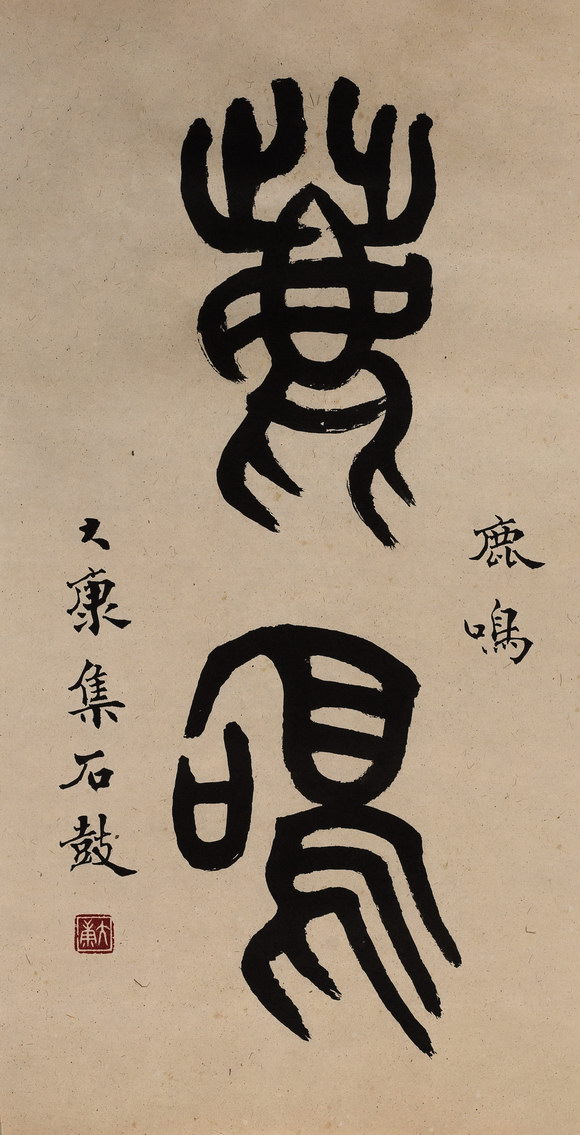 鹿鳴
鹿鳴
大康集石鼓
大康